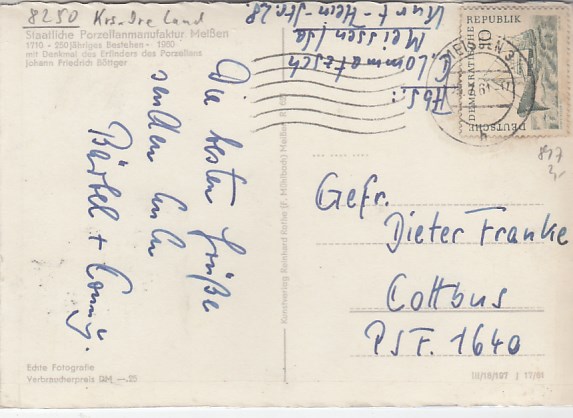 8250 Krs. Dre Land
Staatliche Porzellanmanufaktur Meißen
1710 - 250jähriges Bestehen - 1960
mit Denkmal des Erfinders des Porzellans
Johann Friedrich Böttger
Die besten Grüße
senden
Bärbel + Conny.
Echte Fotografie
Verbraucherpreis DM —.25
Kunstverlag Reinhard Rothe (F. Mühlbach) Meißen
Abs.:
C. Lommatzsch
Meissen/Sa
Kurt-Hein-Str. 28.
DEUTSCHE
DEMOKRATISCHE
REPUBLIK
10
MEISSEN 3
61
h
897
3,-
Gefr.
Dieter Franke
Cottbus
PSF. 1640